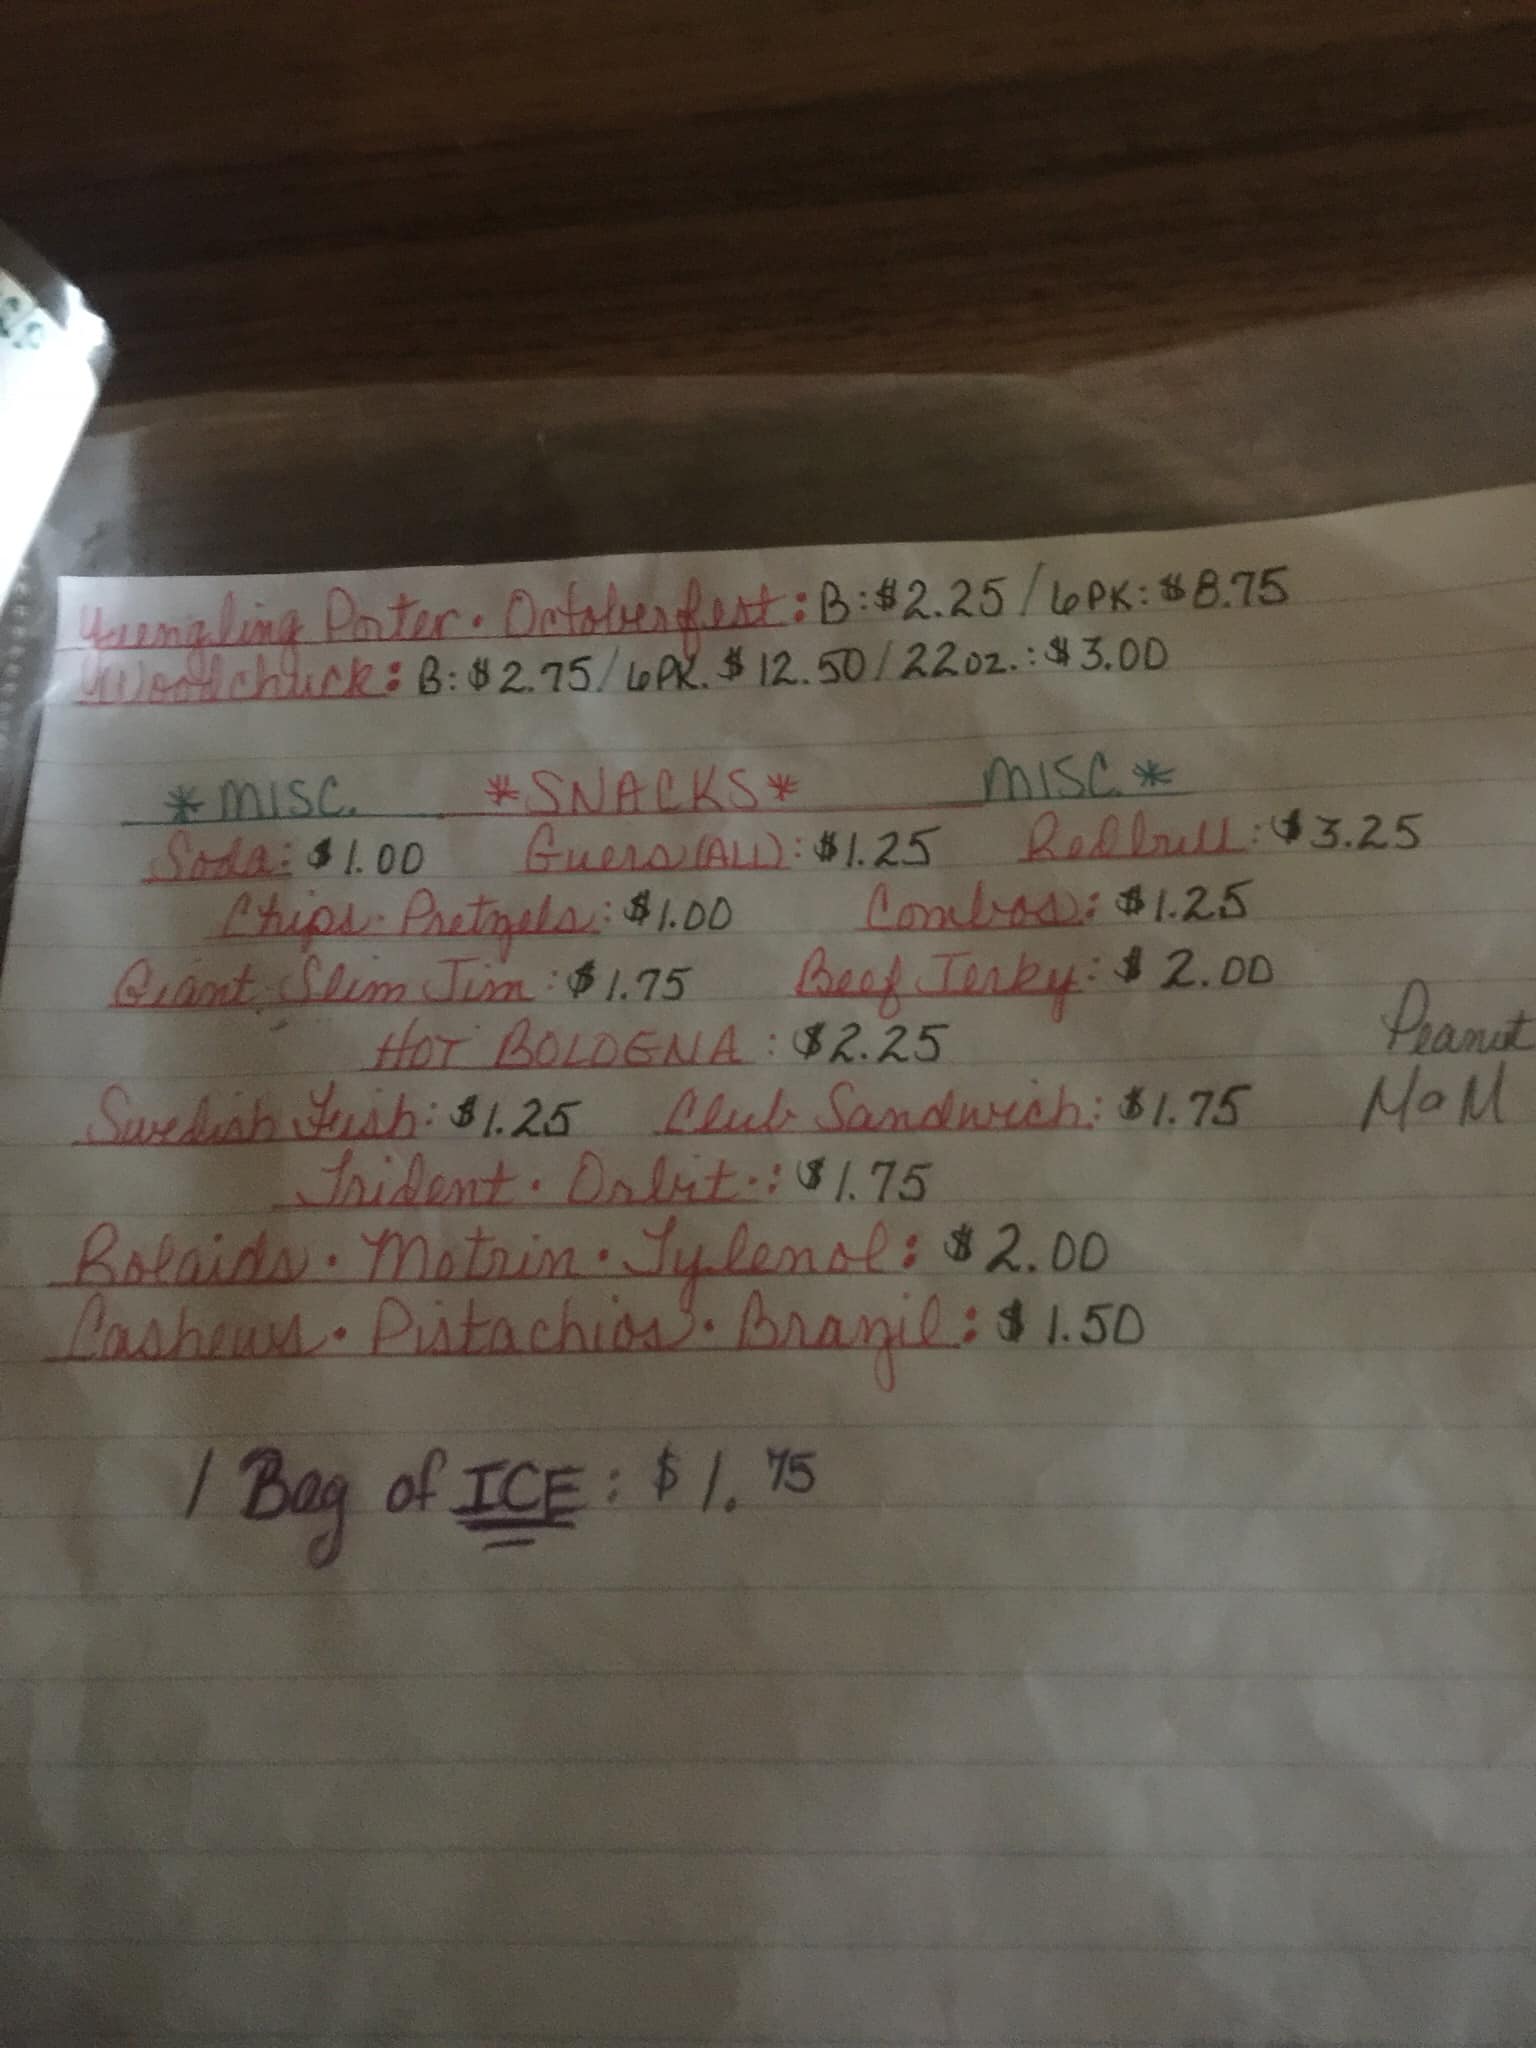 Yuengling Porter • Octoberfest: B:$2.25 / 6PK: $8.75
Woodchuck: B:$2.75/6PK. $12.50/22oz.: $3.00
*MISC. *SNACKS* MISC.*
Soda: $1.00 Guers (ALL): $1.25 Redbull: $3.25
Chips • Pretzels: $1.00 Combos: $1.25
Giant Slim Jim: $1.75 Beef Jerky: $2.00
HOT BOLOGNA: $2.25
Peanut
Swedish Fish: $1.25 Club Sandwich: $1.75 M&M
Trident • Orbit •: $1.75
Rolaids • Motrin • Tylenol: $2.00
Cashews • Pistachios • Brazil: $1.50
1 Bag of ICE: $1.75